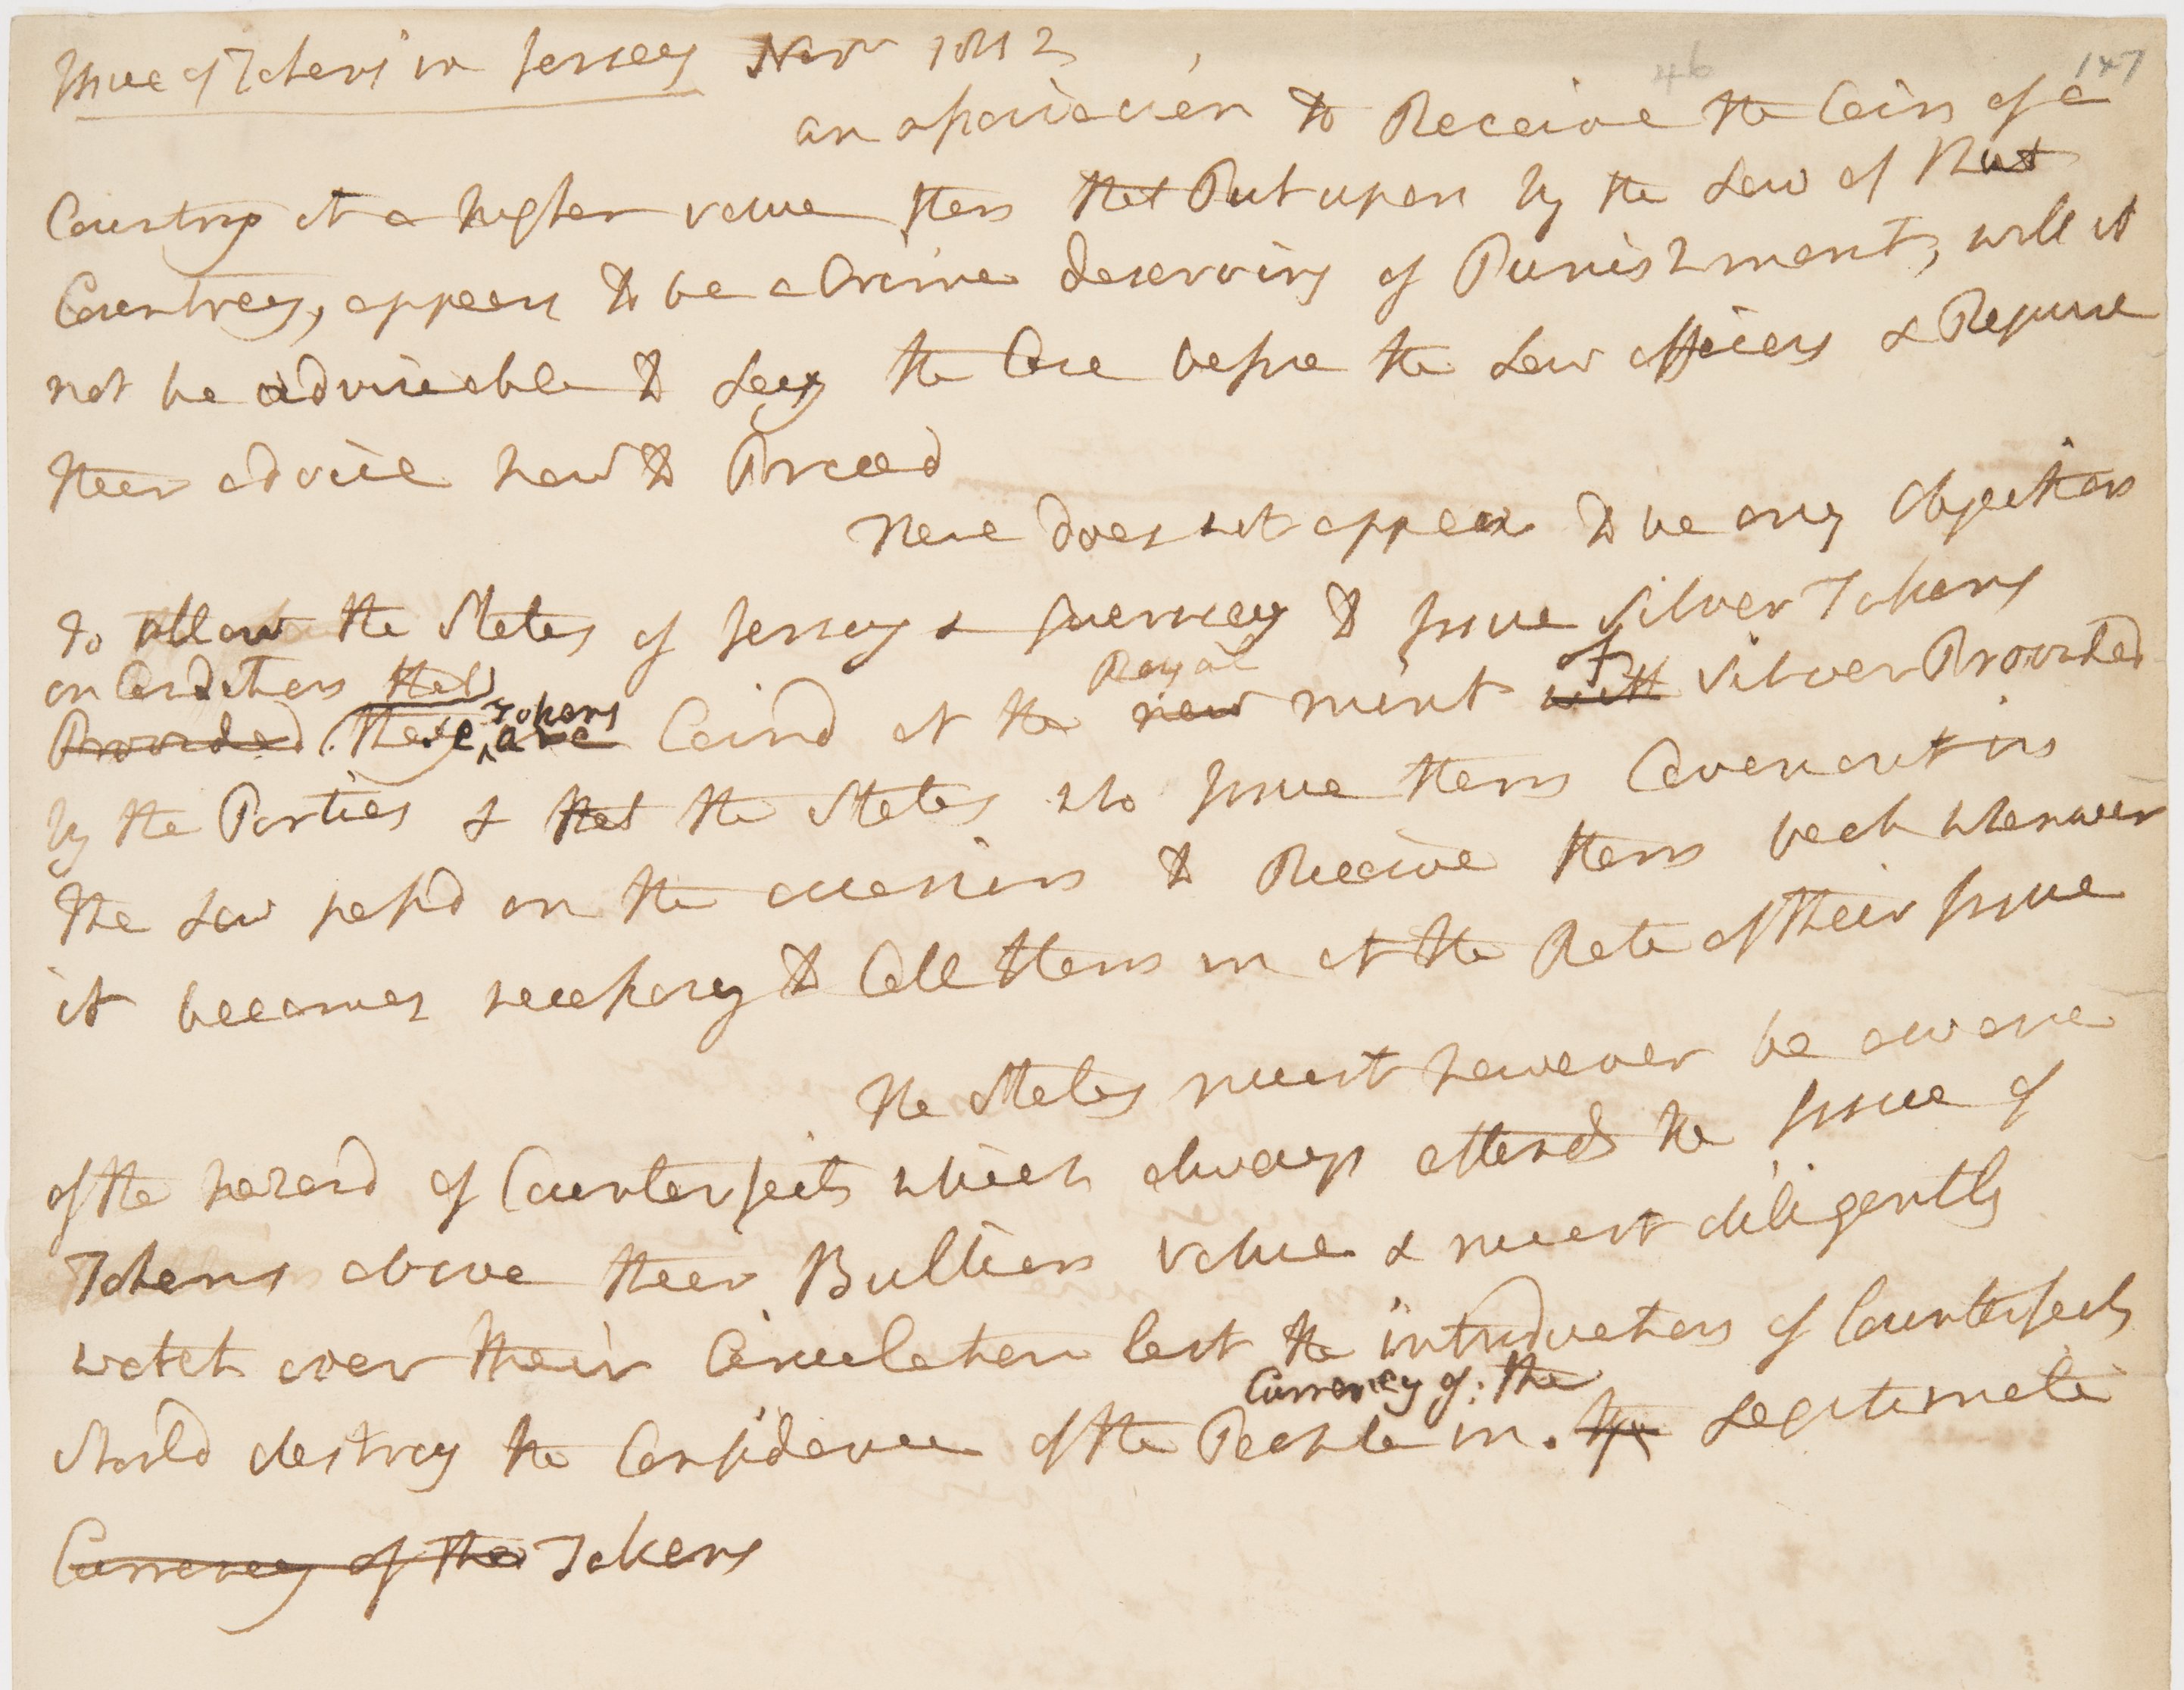 Issue of Tokens in Jersey Novr 1812
46 147
an association to Receive the Coin of a
Country at a higher value then that Put upon by the Law of that
Countrey, appears to be a Crime deserving of Punishment, will it
not be adviseable to Lay the Case before the Law officers & Request
their advice how to Proceed
There does not appear to be any objection
to allow the States of Jersey & Guernsey to Issue Silver Tokens
on Condition that
Provided these Tokens are Coind at the new Royal mint with of Silver Provided
by the Parties & that the States who Issue them Covenant in
the Law passd on the occasion to Receive them back whenever
it becomes necessary to Call them in at the Rate of their Issue
The States must however be aware
of the hazard of Counterfeits which always attends the Issue of
Tokens above their Bullion value & must diligently
watch over their Circulation lest the introduction of Counterfeits
Currency of the
Should destroy the Confidence of the People in the Legitimate
Currency of the Tokens